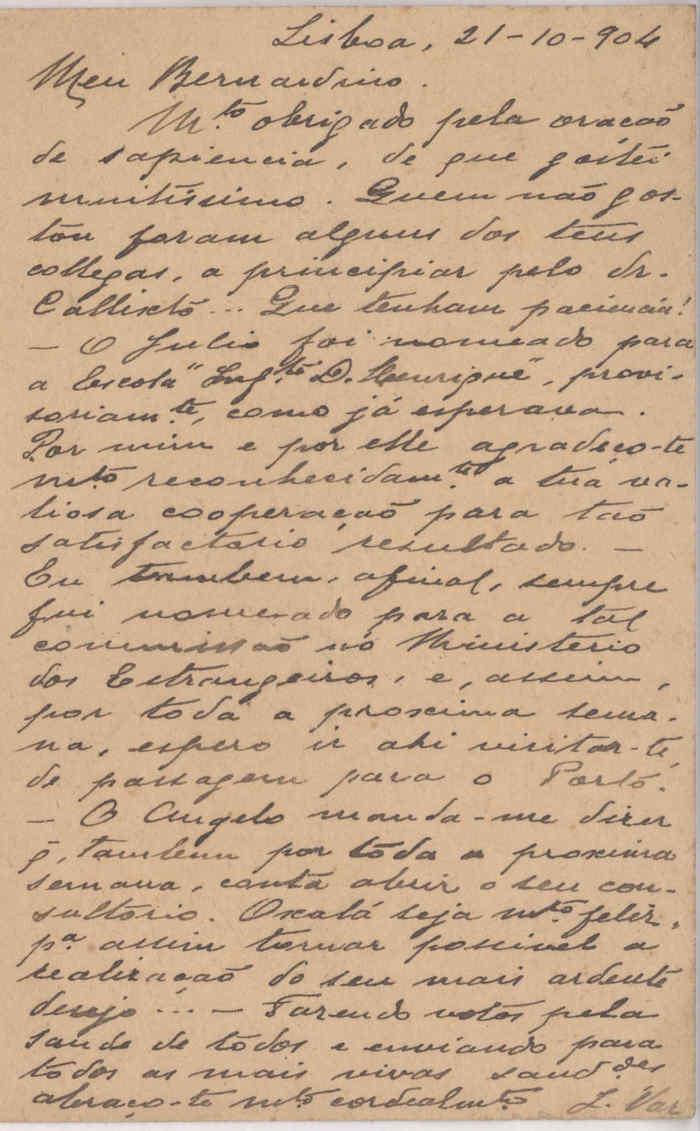 Lisboa, 21-10-904
Meu Bernardino.
M.to obrigado pela oração
de sapiencia, de que gostei
muitissimo. Quem não gos-
tou foram alguns dos teus
collegas, a principiar pelo dr.
Callixto... Que tenham paciencia!
— O Julio foi nomeado para
a Escola "Inf.te D. Henrique", provi-
soriam.te, como já esperava.
Por mim e por elle agradeço-te
m.to reconhecidam.te a tua va-
liosa cooperação para tão
satisfactorio resultado. —
Eu tambem, afinal, sempre
fui nomeado para a tal
commissão no Ministerio
dos Estrangeiros, e, assim,
por toda a proxima sema-
na, espero ir ahi visitar-te,
de passagem para o Porto.
— O Angelo manda-me dizer
q̃, tambem por toda a proxima
semana, conta abrir o seu con-
sultorio. Oxalá seja m.to feliz,
p.a assim tornar possivel a
realização do seu mais ardente
desejo... — Fazendo votos pela
saude de todos e enviando para
todos as mais vivas saud.des
abraço-te m.to cordealm.te L. Var